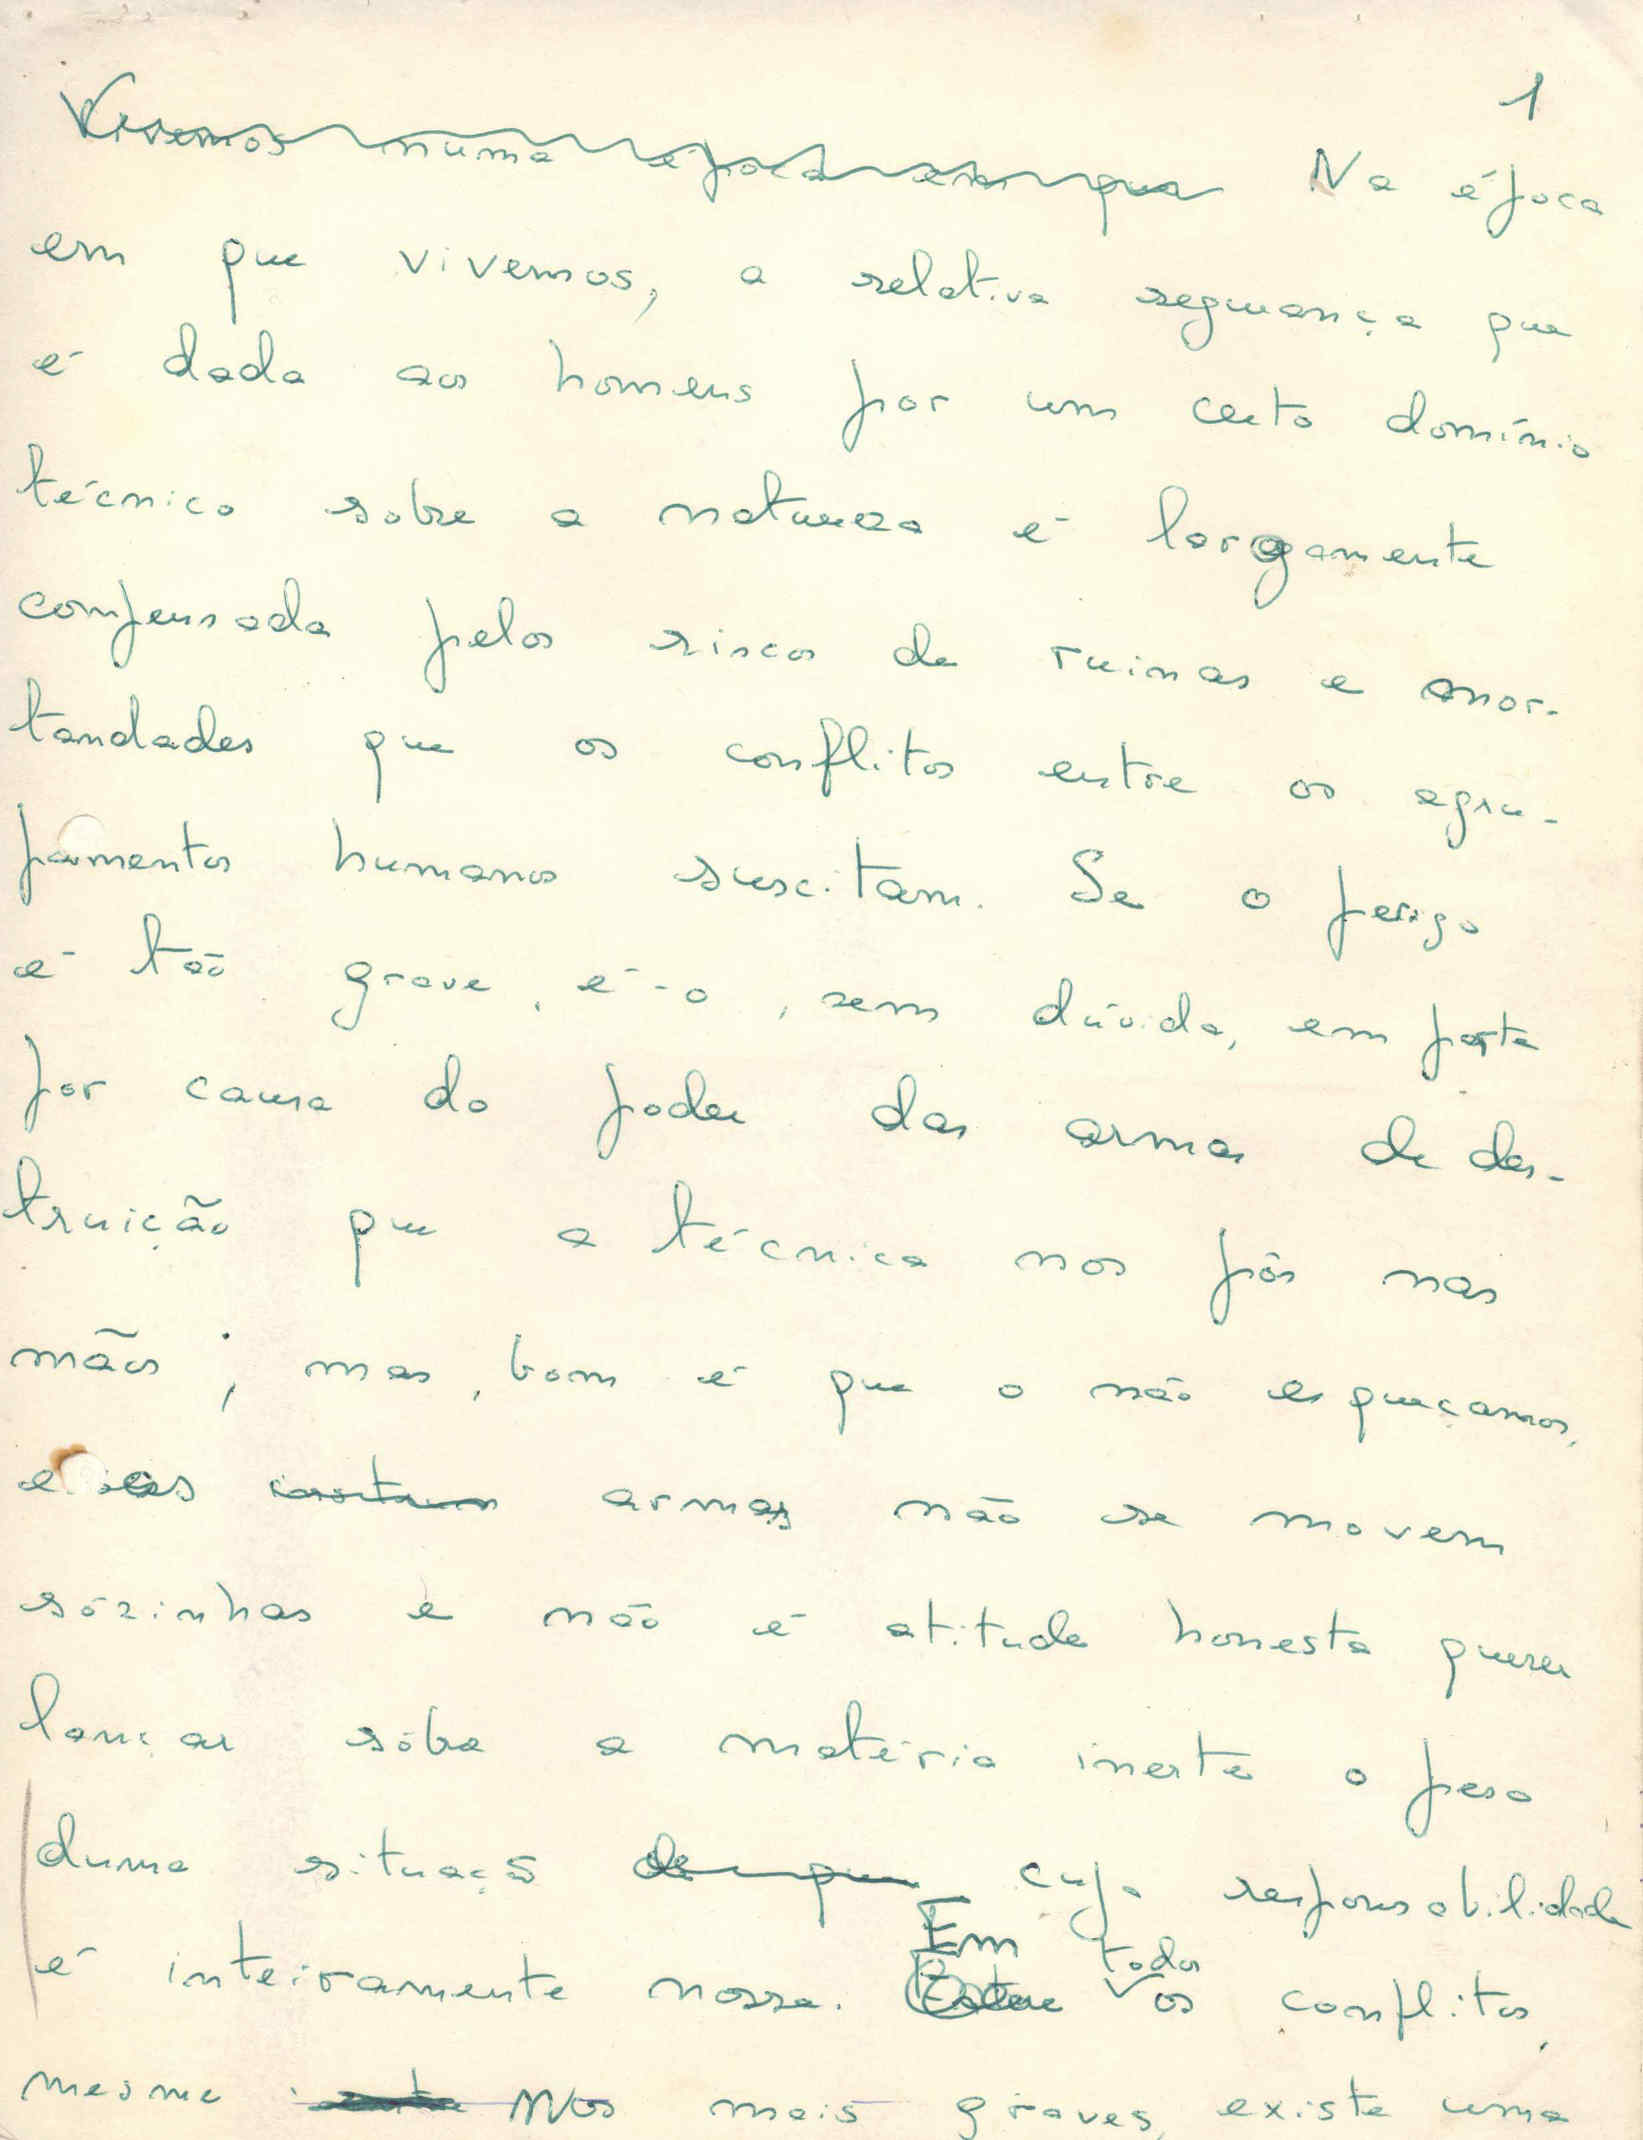 1
Vivemos numa época em que Na época
em que vivemos, a relativa segurança que
é dada aos homens por um certo domínio
técnico sobre a natureza é largamente
compensada pelos riscos de ruinas e mor-
tandades que os conflitos entre os agru-
pamentos humanos suscitam. Se o perigo
é tão grave, é-o, sem dúvida, em parte
por causa do poder das armas de des-
truição que a técnica nos pôs nas
mãos; mas, bom é que o não esqueçamos,
essas armas não se movem
sòzinhas e não é atitude honesta querer
lançar sôbre a matéria inerte o peso
duma situação de que cuja responsabilidade
é inteiramente nossa. Em todos os conflitos,
mesmo nos mais graves, existe uma